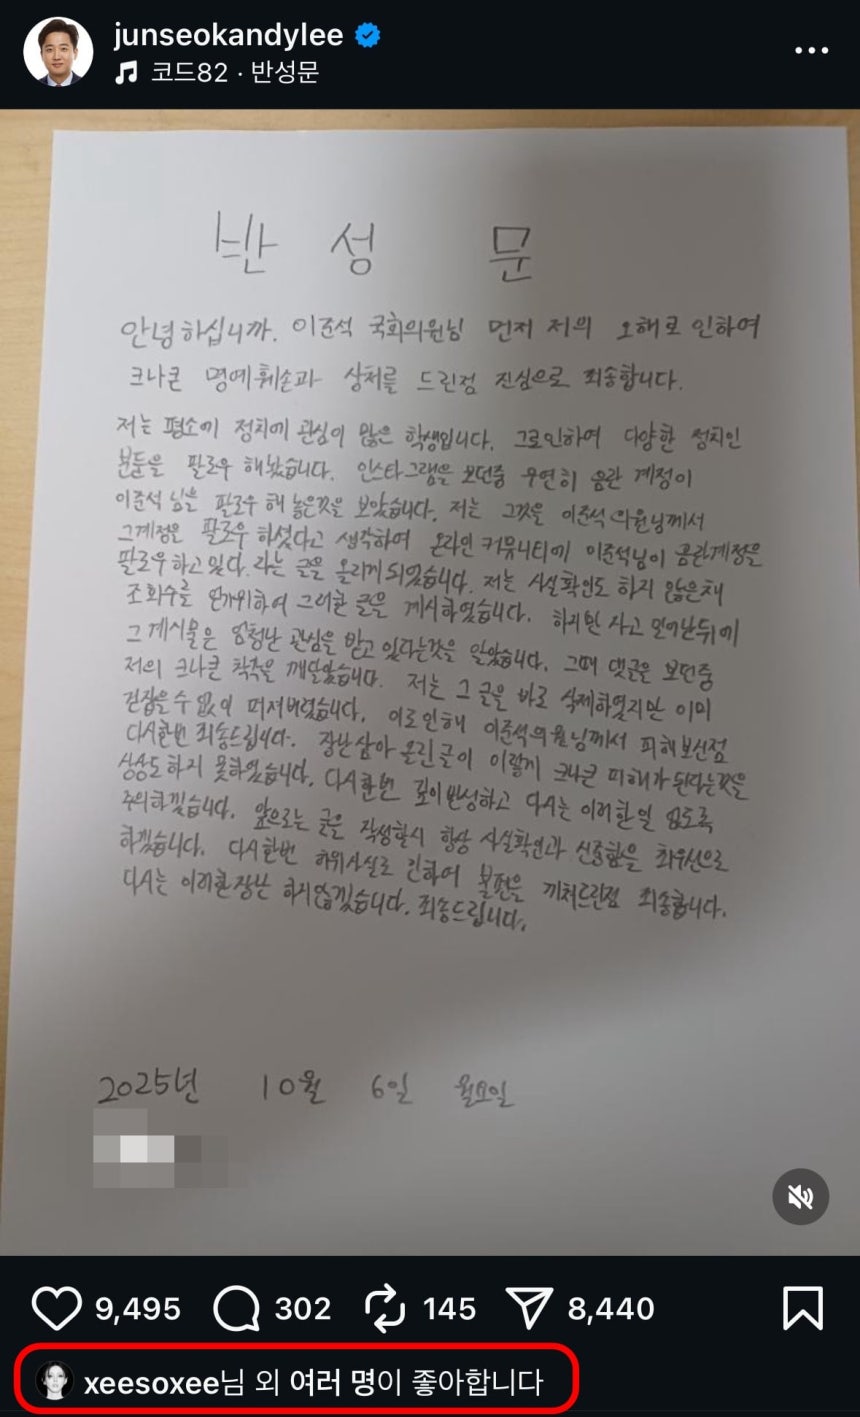 junseokandylee
코드82 · 반성문
반성문
안녕하십니까. 이준석 국회의원님 먼저 저의 오해로 인하여
크나큰 명예훼손과 상처를 드린점 진심으로 죄송합니다.
저는 평소에 정치에 관심이 많은 학생입니다. 그로인하여 다양한 정치인
분들을 팔로우 해놨습니다. 인스타그램을 보던중 우연히 음란 계정이
이준석 님을 팔로우 해 놓은것을 보았습니다. 저는 그것을 이준석 의원님께서
그계정은 팔로우 하셨다고 생각하여 온라인 커뮤니티에 이준석님이 음란계정을
팔로우하고 있다. 라는 글을 올리게 되었습니다. 저는 사실확인도 하지 않은채
조회수를 얻기위하여 그러한 글을 게시하였습니다. 하지만 사고 일어난뒤에
그 게시물은 엄청난 관심을 받고 있다는것을 알았습니다. 그때 댓글을 보던중
저의 크나큰 착오를 깨달았습니다. 저는 그 글을 바로 삭제하였지만 이미
걷잡을수 없이 퍼져버렸습니다. 이로인해 이준석의원님께서 피해보신점
다시한번 죄송드립니다. 장난삼아 올린글이 이렇게 크나큰 피해가 된다는것을
상상도 하지 못하였습니다. 다시한번 깊이반성하고 다시는 이러한일 없도록
주의하겠습니다. 앞으로는 글을 작성할시 항상 사실확인과 신중함을 최우선으로
하겠습니다. 다시한번 허위사실로 인하여 불편을 끼쳐드린점 죄송합니다.
다시는 이러한장난 하지않겠습니다. 죄송드립니다.
2025년 10월 6일 월요일
9,495 302 145 8,440
xeesoxee님 외 여러 명이 좋아합니다